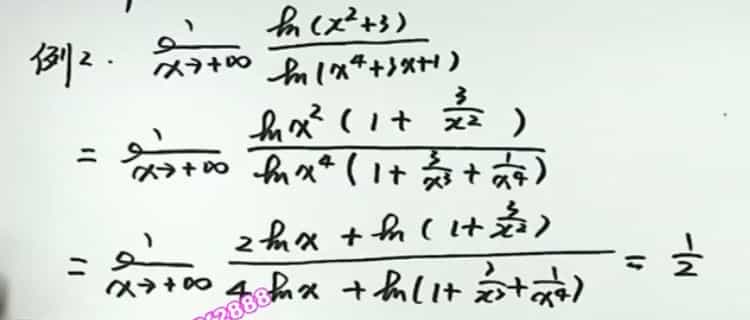 例2. lim x→+∞ ln(x²+3) / ln(x⁴+3x+1)
= lim x→+∞ ln x²(1 + 3/x²) / ln x⁴(1 + 3/x³ + 1/x⁴)
= lim x→+∞ 2 ln x + ln(1 + 3/x²) / 4 ln x + ln(1 + 3/x³ + 1/x⁴) = 1/2